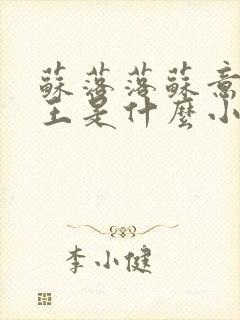 蘇落落蘇意
主是什麼小
李小健